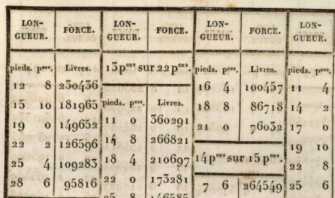 LON- FORCE. LON- FORCE. LON- FORCE. LON-
GUEUR. GUEUR. GUEUR. GUEUR.
pieds. pces. Livres. 13pces sur 22pces. pieds. pces. Livres. pieds. pces.
12 8 230436 16 4 100457 11 4
15 10 181965 pieds. pces. Livres. 18 8 86718 14 2
19 0 149652 11 0 360291 21 0 76032 17 0
22 2 126596 14 8 266821 19 10
25 4 109283 18 4 210697 14pces sur 15pces. 22 8
28 6 95816 22 0 173281 7 6 264549 25 6
25 8